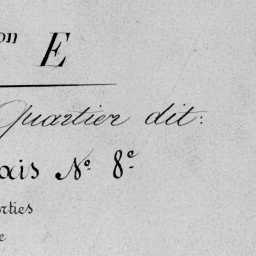 on E
Quartier dit:
ais No. 8e.
rties
e